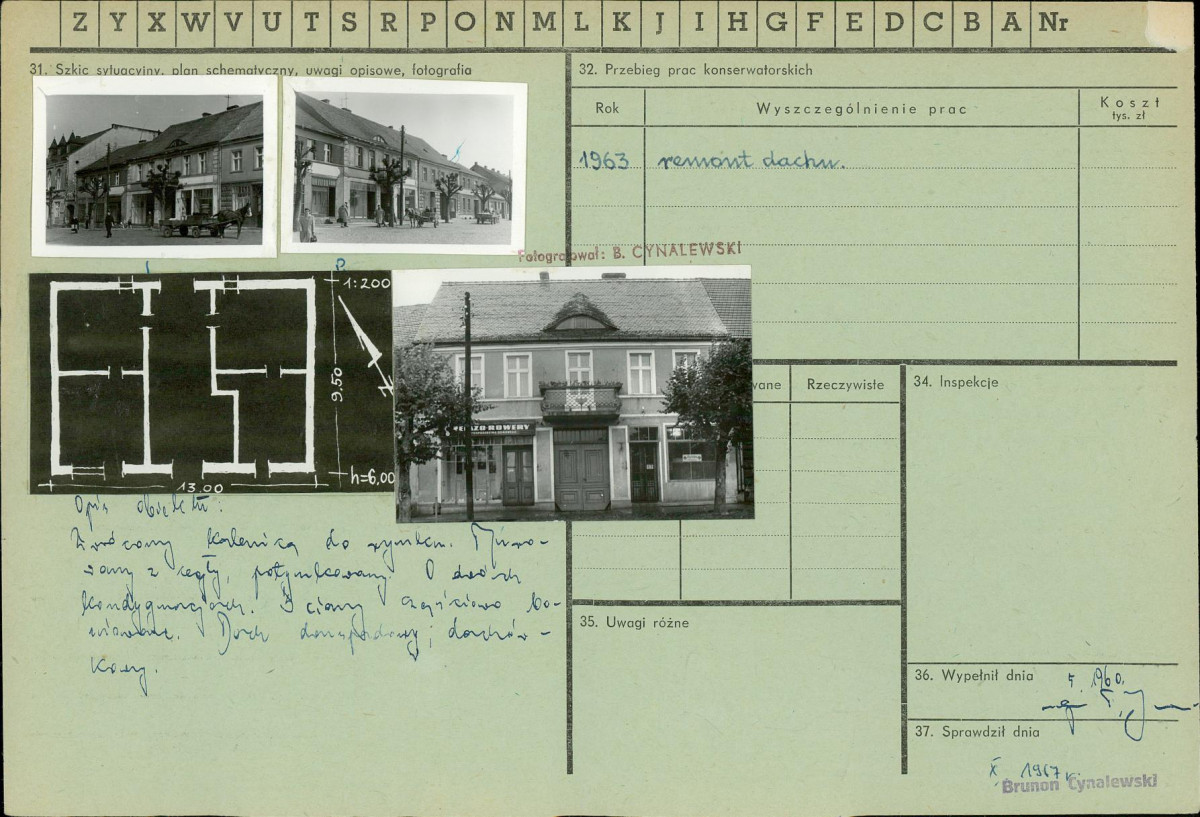 Z Y X W V U T S R P O N M L K J I H G F E D C B A Nr
31. Szkic sytuacyjny, plan schematyczny, uwagi opisowe, fotografia
32. Przebieg prac konserwatorskich
Rok
Wyszczególnienie prac
Koszt
tys. zł
1963 remont dachu.
Fotografował: B. CYNALEWSKI
1:200
9.50
N
h=6,00
13.00
ROWERY
wane
Rzeczywiste
34. Inspekcje
Opis obiektu:
Zwrócony kalenicą do rynku. Muro-
wany z cegły, potynkowany. O dwóch
kondygnacjach. Ściany częściowo bo-
niowane. Dach dwuspadowy, dachów-
kowy.
35. Uwagi różne
36. Wypełnił dnia
5. 1960.
mgr
37. Sprawdził dnia
X 1967 r.
Brunon Cynalewski